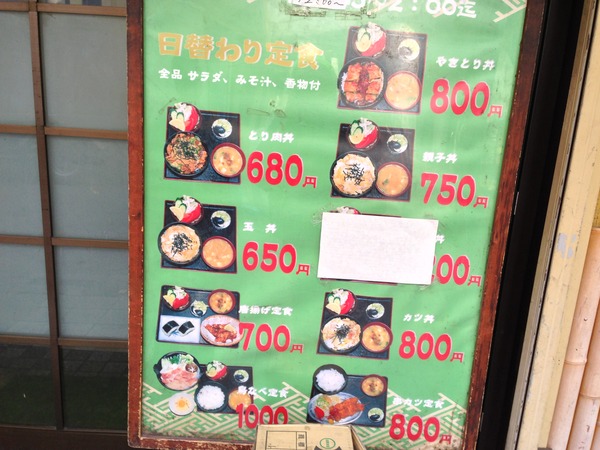 2:00迄
日替わり定食
全品 サラダ、みそ汁、香物付
やきとり丼
800円
とり肉丼
680円
親子丼
750円
玉丼
650円
00円
唐揚げ定食
700円
カツ丼
800円
鳥なべ定食
1000
串カツ定食
800円